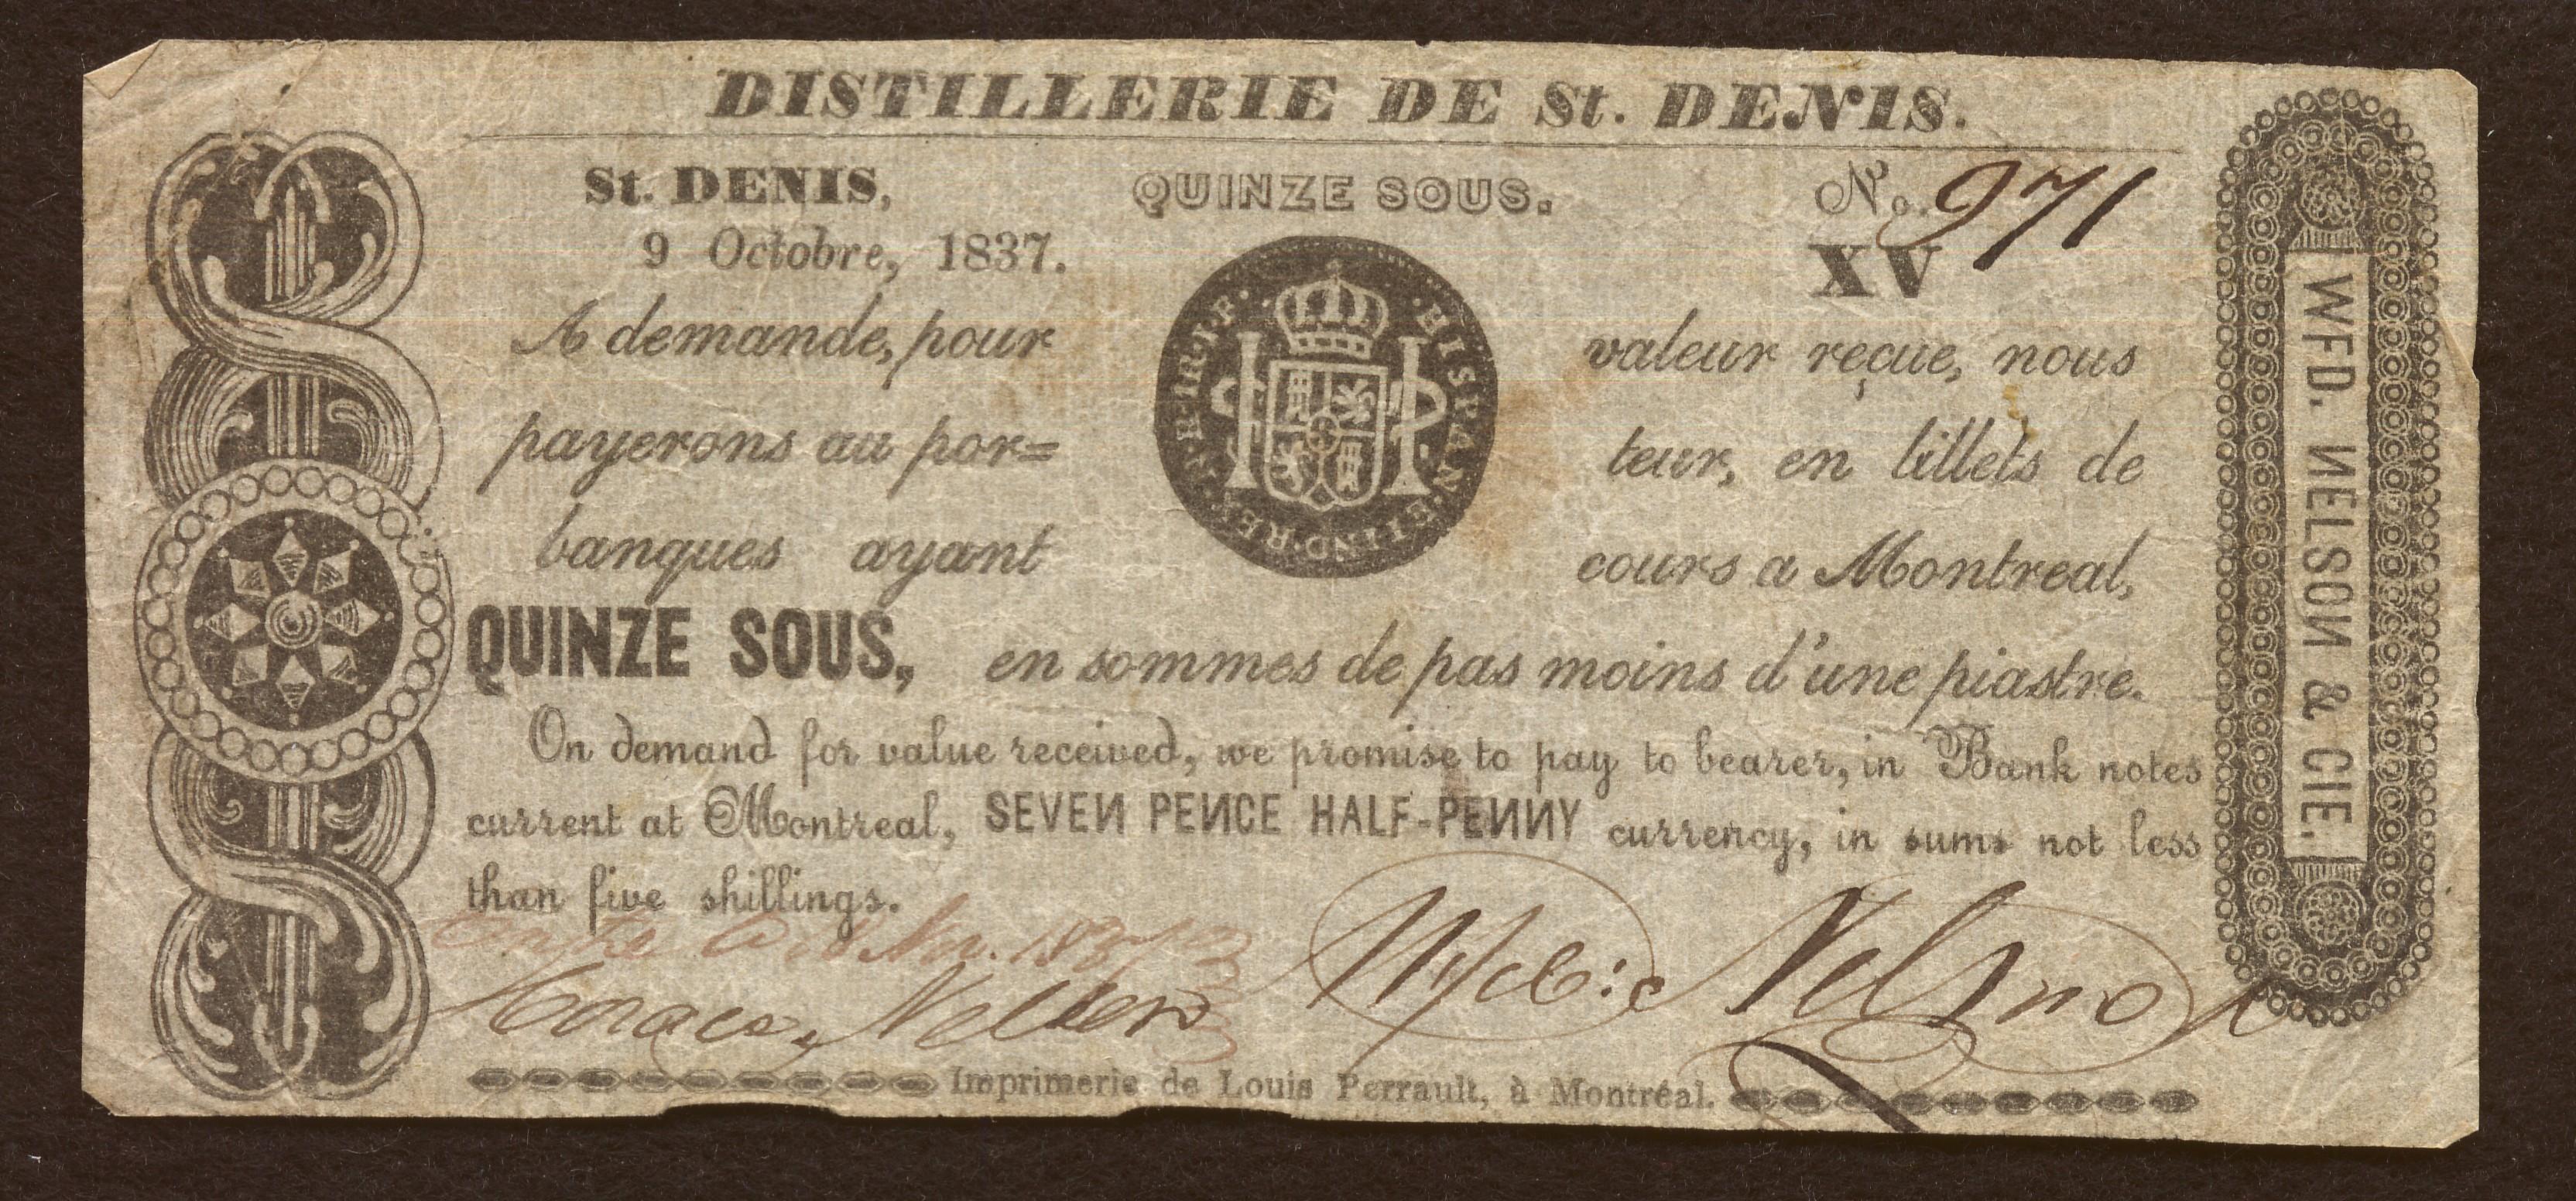 DISTILLERIE DE St. DENIS.
St. DENIS, QUINZE SOUS. No. 971
9 Octobre, 1837. XV
HISPAN·ET IND·REX·
A demande, pour valeur reçue, nous
payerons au por= teur, en billets de
banques ayant cours a Montreal,
QUINZE SOUS, en sommes de pas moins d'une piastre.
On demand for value received, we promise to pay to bearer, in Bank notes
current at Montreal, SEVEN PENCE HALF-PENNY currency, in sums not less
than five shillings.
Nelson
Imprimerie de Louis Perrault, à Montréal.
WFD. NELSON & CIE.